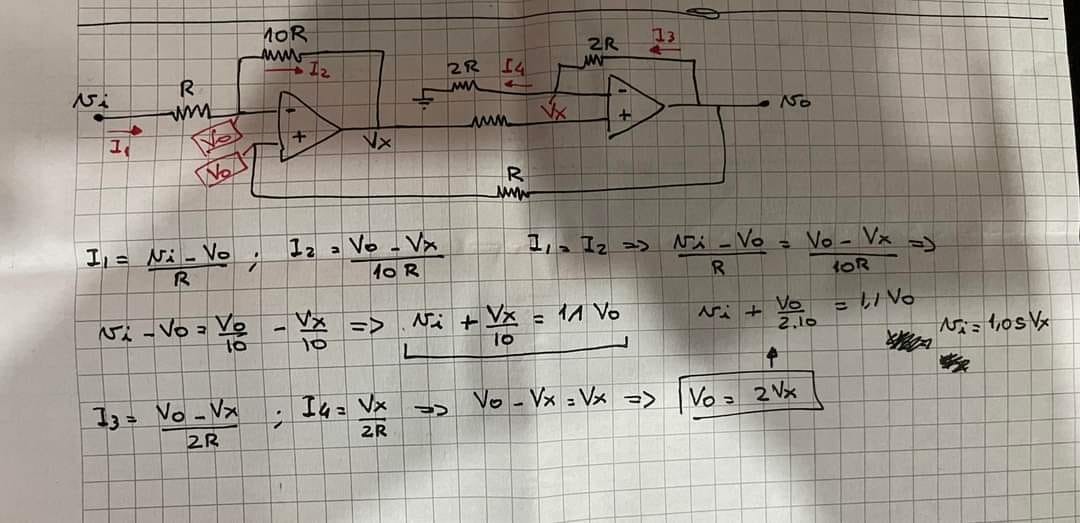 10R
I₂
2R
I₃
2R
I₄
Ni
R
I₁
Vo
Vo
-
+
Vx
Vx
-
+
No
R
I₁ = (Ni - Vo)/R ; I₂ = (Vo - Vx)/10R    I₁ = I₂ => (Ni - Vo)/R = (Vo - Vx)/10R =>
Ni - Vo = Vo/10 - Vx/10 => Ni + Vx/10 = 1.1 Vo    Ni + Vo/2.10 = 1,1 Vo    Ni = 1,05 Vx
I₃ = (Vo - Vx)/2R ; I₄ = Vx/2R => Vo - Vx = Vx => Vo = 2Vx